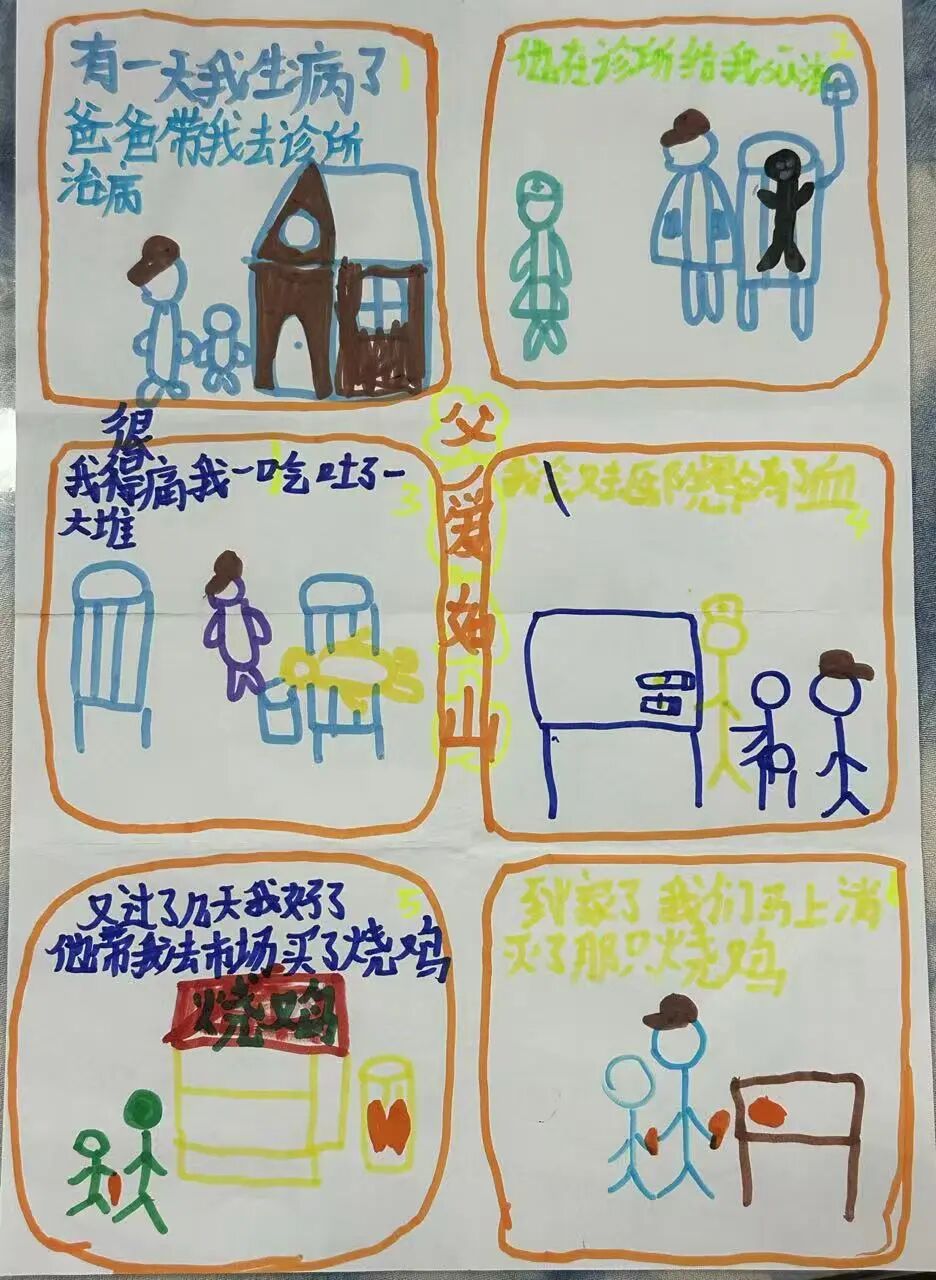 有一天我生病了
1
爸爸带我去诊所
治病
2
他在诊所给我
很
我得痛我一吃吐了一
大堆
3
父爱如山
血
4
又过了几天我好了
5
他带我去市场买了烧鸡
烧鸡
到家了我们马上消
灭了那只烧鸡